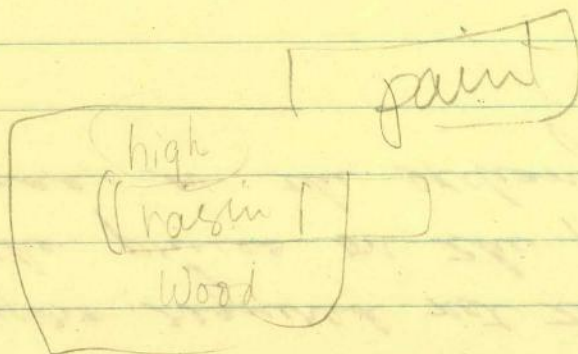 paint
high
rasin
wood